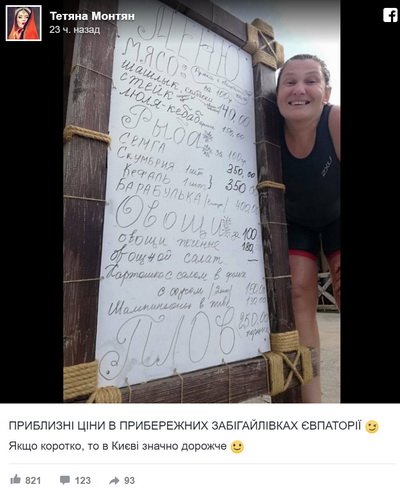 Тетяна Монтян
23 ч. назад
МЕНЮ
МЯСО
за 100гр
шашлык 140,00
стейк
люля-кебаб
Рыба за 100гр
Сёмга
Скумбрия 1шт 250,00
Кефаль 1шт 350,00
Барабулька
Овощи 100
овощи 180
овощной салат —
Картошка с салом
Шампиньоны
ПЛОВ 250,00
ПРИБЛИЗНІ ЦІНИ В ПРИБЕРЕЖНИХ ЗАБІГАЙЛІВКАХ ЄВПАТОРІЇ
Якщо коротко, то в Києві значно дорожче
821 123 93